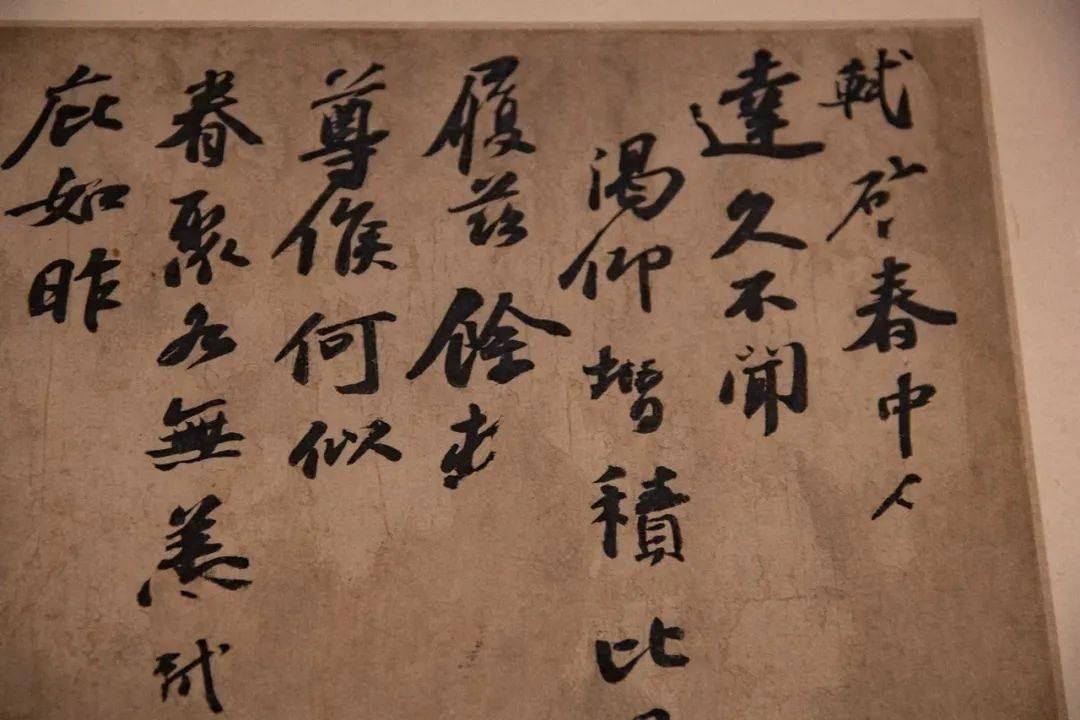 軾啓春中人
違久不聞
渴仰增積比日
履茲餘春
尊候何似
眷聚各無恙軾
庇如昨